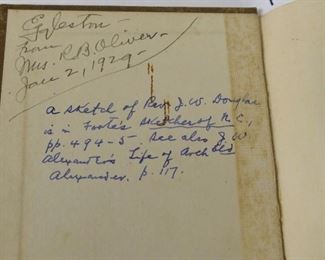 Egleston
from
Mrs. R. B. Oliver
Jan 2, 1929
A sketch of Rev. J. W. Douglas
is in Foote's Sketches of N. C.,
pp. 494-5. See also J W
Alexander's Life of Archibald
Alexander. p. 117.